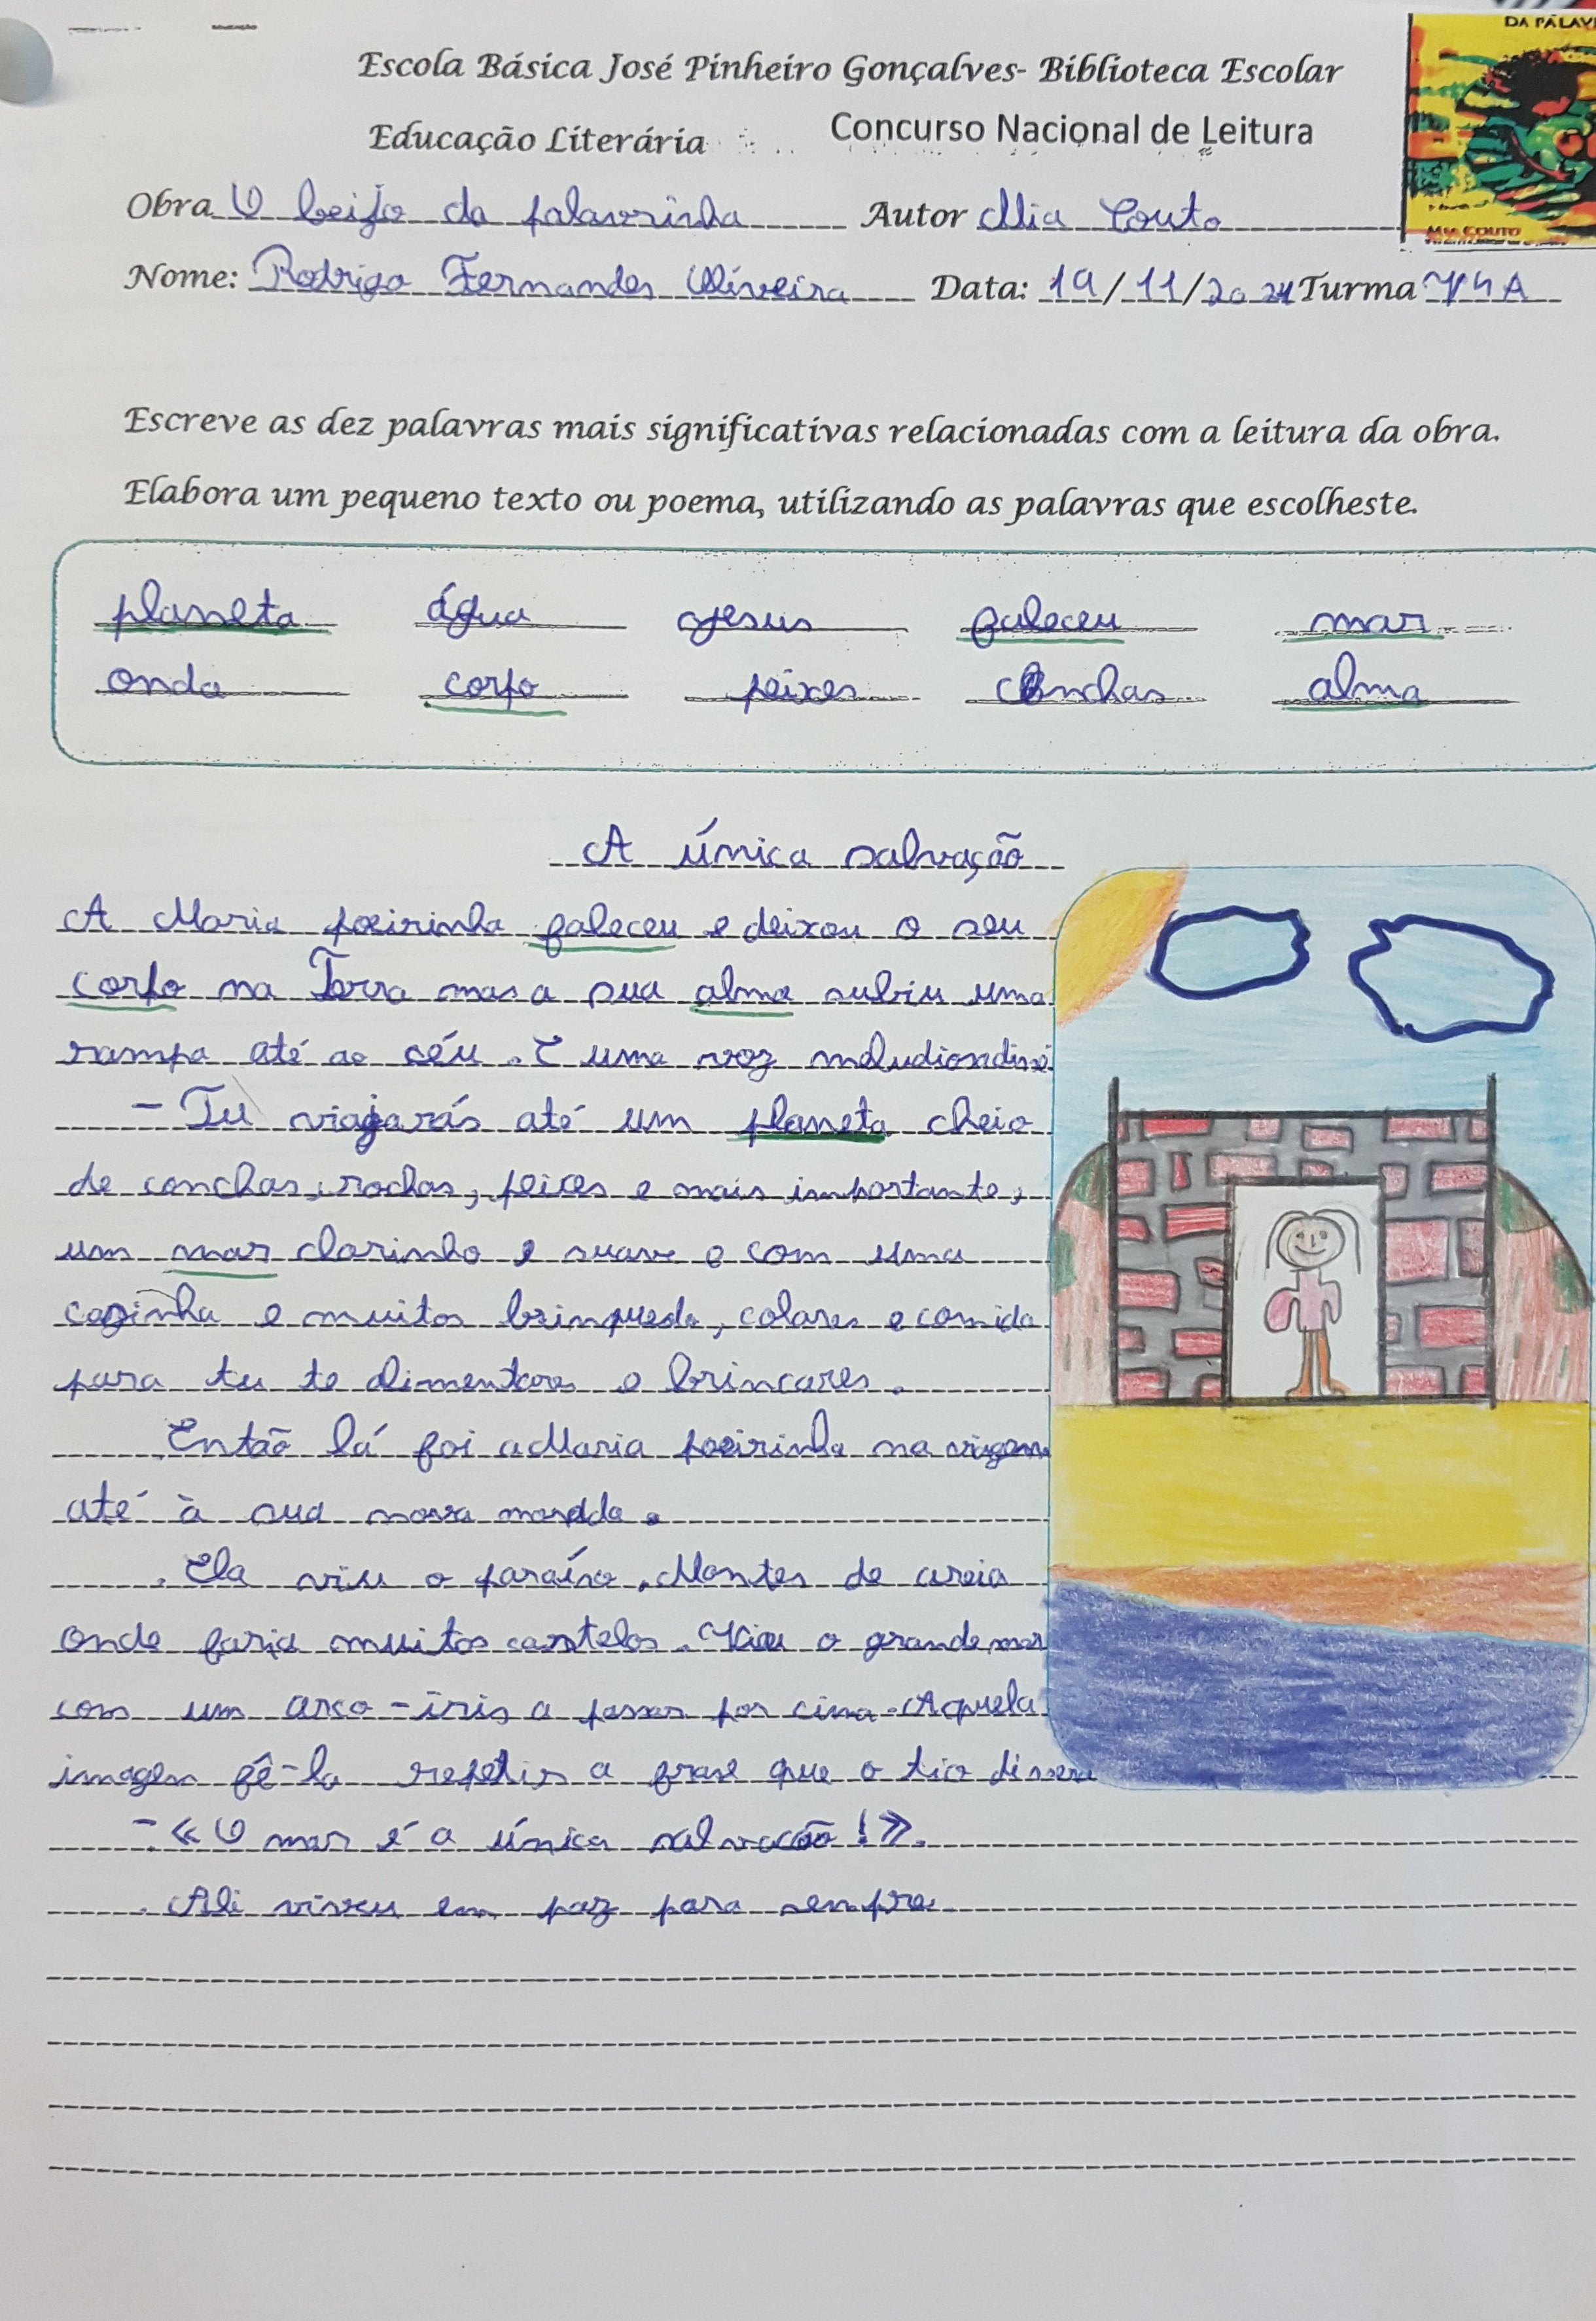 DA PALAV
Escola Básica José Pinheiro Gonçalves- Biblioteca Escolar
Educação Literária Concurso Nacional de Leitura
Obra O beijo da palavrinha Autor Mia Couto
Mia COUTO
Nome: Rodrigo Fernandes Oliveira Data: 19/11/2021 Turma V4A
Escreve as dez palavras mais significativas relacionadas com a leitura da obra.
Elabora um pequeno texto ou poema, utilizando as palavras que escolheste.
planeta água Jesus faleceu mar
onda corpo peixes conchas alma
A única salvação
A Maria poeirinha faleceu e deixou o seu
corpo na Terra mas a sua alma subiu uma
rampa até ao céu. E uma voz meludiosa disse
- Tu viajarás até um planeta cheio
de conchas, rochas, peices e mais importante,
um mar clarinho e suave e com uma
cazinha e muitos brinquedo, colares e comida
para tu te alimentares e brincares.
Então lá foi a Maria poeirinha na viagem
até à sua nova morada.
Ela viu o paraíso. Montes de areia
onde faria muitos castelos. Viu o grande mar
com um arco-íris a passar por cima. Aquela
imagem fê-la repetir a frase que o tio dissera
- «O mar é a única salvação!».
Ali viveu em paz para sempre